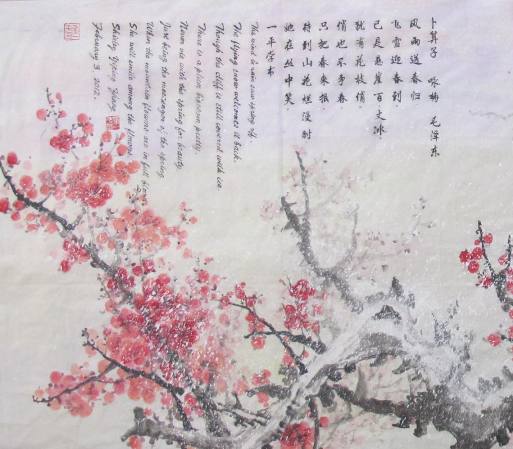 卜算子 咏梅 毛泽东
风雨送春归
飞雪迎春到
已是悬崖百丈冰
犹有花枝俏
俏也不争春
只把春来报
待到山花烂漫时
她在丛中笑
一平学书
The wind & rain send spring off,
The flying snow welcomes it back.
Though the cliff is still covered with ice,
There is a plum blossom pretty.
Never vie with the spring for beauty,
Just being the messenger of the spring.
When the mountain flowers are in full bloom,
She will smile among the flowers.
Shirley Yiping Zhang
February 3, 2012.